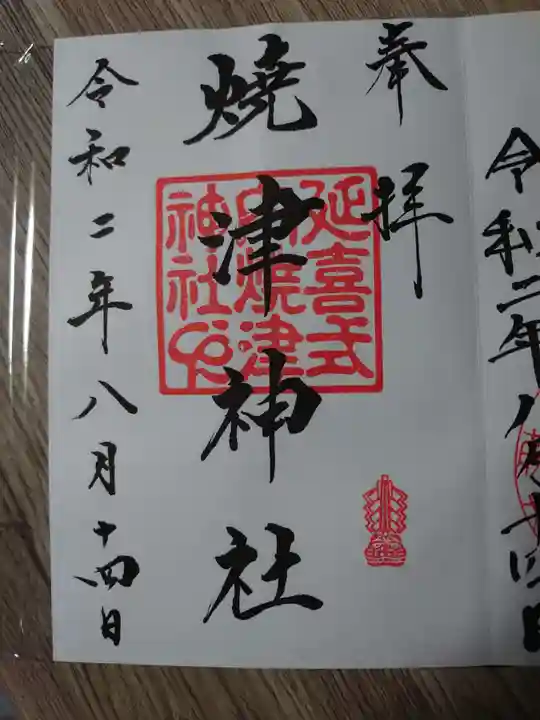 令和二年八月十四日
奉拝
燒津神社
延喜式
燒津
神社
令和二年八月十四日